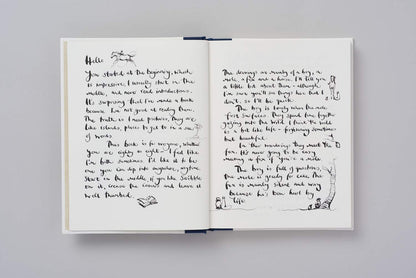 Hello
You started at the beginning, which
is impressive. I usually start in the
middle, and never read introductions.
It's surprising that I've made a book
because I'm not good at reading them.
The truth is I need pictures, they are
like islands, places to get to in a sea
of words.
This book is for everyone, whether
you are eighty or eight - I feel like
I'm both sometimes. I'd like it to be
one you can dip into anywhere, anytime.
Start in the middle, if you like. Scribble
on it, crease the corners and leave it
well thumbed.
The drawings are mainly of a boy, a
mole, a fox and a horse. I'll tell you
a little bit about them - although
I'm sure you'll see things here that I
don't, so I'll be quick.
The boy is lonely when the mole
first surfaces. They spend time together
gazing into the wild. I think the wild
is a bit like life - frightening sometimes
but beautiful.
In their wanderings they meet the
fox. It's never going to be easy
meeting a fox if you're a mole.
The boy is full of questions,
the mole is greedy for cake. The
fox is mainly silent and wary
because he's been hurt by
life.